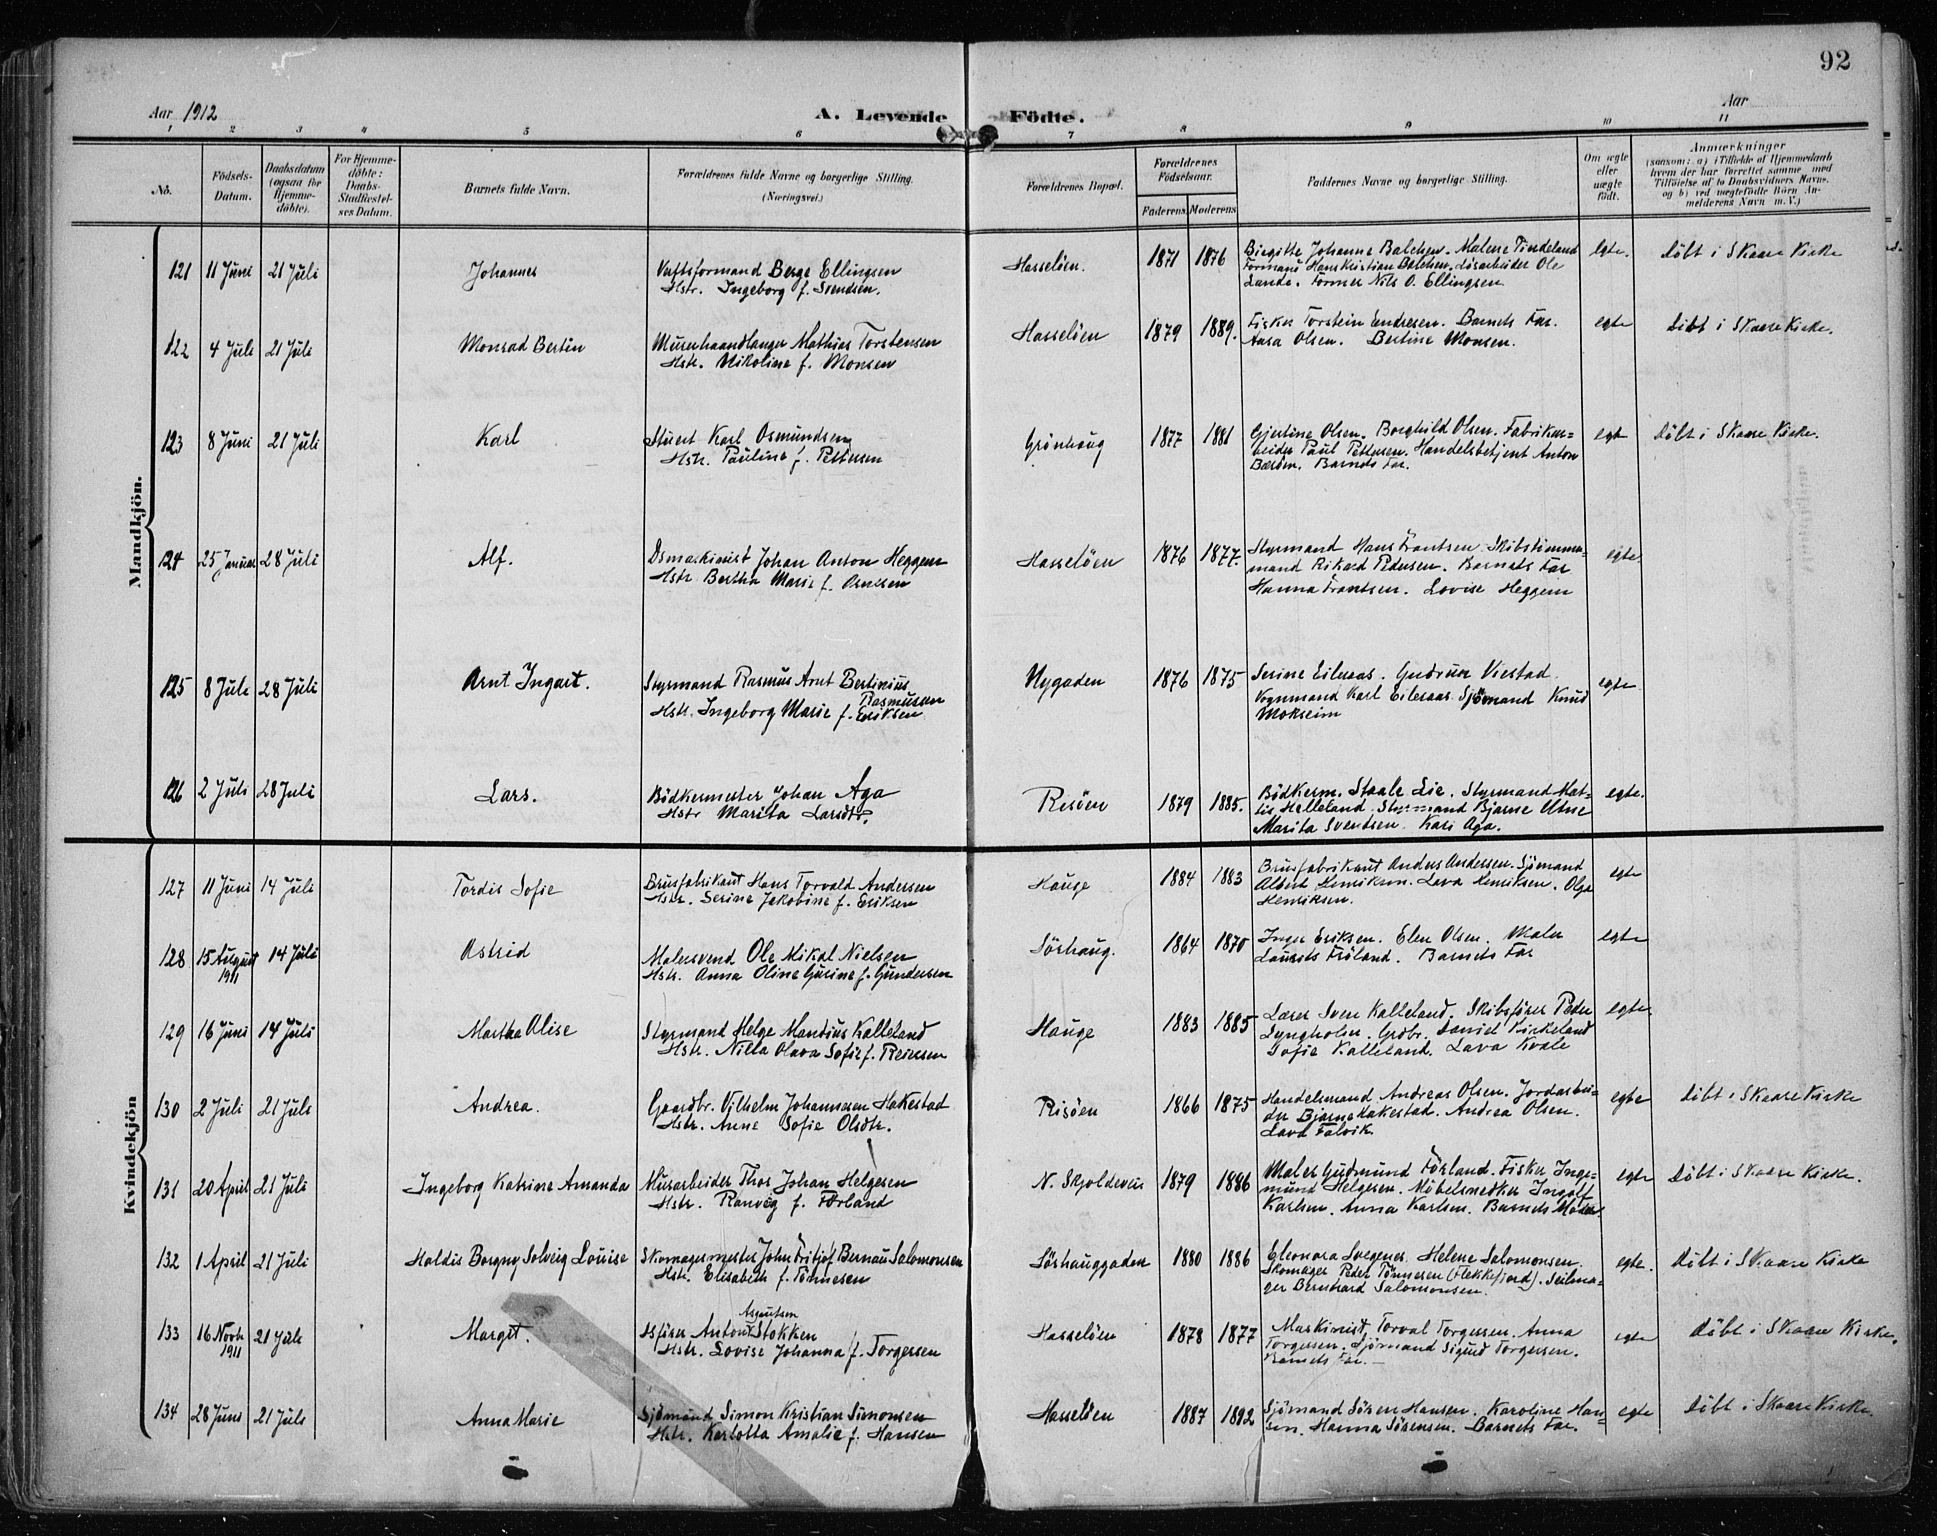 92
Aar 1912
A. Levende Födte.
Aar
1 2 3 4 5 6 7 8 9 10 11
No.
Födsels-
Datum.
Daabsdatum
(ogsaa for
Hjemme-
döbte).
For Hjemme-
döbte:
Daabs-
Stadfæstel-
ses Datum.
Barnets fulde Navn.
Forældrenes fulde Navne og borgerlige Stilling.
(Næringsvei.)
Forældrenes Bopæl.
Forældrenes
Födselsaar.
Faderens Moderens
Faddernes Navne og borgerlige Stilling.
Om ægte
eller
uægte
födt.
Anmærkninger
(saasom: a) i Tilfælde af Hjemmedaab
hvem der har forrettet samme, med
Tilföielse af to Daabsvidners Navne,
og b) ved uægtefödte Börn An-
melderens Navn m. V.)
Mandkjön.
121 11 Juni 21 Juli Johannes
Værftsformand Berge Ellingsen
Hstr. Ingeborg f. Svendsen.
Hasselöen. 1871 1876
Birgitte Johanne Balchen. Malene Tindeland
Formand Hans Kristian Balchen. Lösarbeider Ole
Lande. Former Nils O. Ellingsen
egte. döbt i Skaare Kirke
122 4 Juli 21 Juli Monrad Bertin
Murerhaandlanger Mathias Torstensen
Hstr. Nikoline f. Monsen
Hasselöen 1879 1889.
Fisker Torstein Endresen. Barnets Far.
Aasa Olsen. Bertine Monsen.
egte döbt i Skaare Kirke.
123 8 Juni 21 Juli Karl
Stuert Karl Osmundsen
Hstr. Pauline f. Pettersen
Grönhaug 1877 1881
Gjertine Olsen. Borghild Olsen. Fabrikar=
beider Paul Pettersen. Handelsbetjent Anton
Barnets Far.
egte döbt i Skaare Kirke.
124 25 Januar 28 Juli Alf.
Dsmaskinist Johan Anton Heggem
Hstr. Bertha Marie f. Arnesen
Hasselöen 1876 1877.
Styrmand Hans Frantsen. Skibstömmer=
mand Rikard Pedersen. Barnets Far
Hanna Frantsen. Lovise Heggem
egte.
125 8 Juli 28 Juli Arnt Ingart.
Styrmand Rasmus Arnt Bertinius
Rasmussen
Hstr. Ingeborg Marie f. Eriksen
Nygaden 1876 1875
Serine Eileraas. Gudrun Viestad.
Vognmand Karl Eileraas. Sjömand Knud
Mokseim
egte
126 2 Juli 28 Juli Lars.
Bödkermester Johan Aga
Hstr Marita Larsdtr.
Risöen 1879 1885.
Bödkerm. Staale Lie. Styrmand Mat-
tis Helleland. Styrmand Bjarne Utne
Marita Svendsen. Kari Aga.
egte.
Kvindekjön
127 11 Juni 14 Juli Tordis Sofie
Brusfabrikant Hans Torvald Andersen
Hstr. Serine Jakobine f. Eriksen
Hauge 1884 1883
Brusfabrikant Anders Andersen. Sjömand
Albert Henriksen. Lava Henriksen. Olga
Henriksen.
egte
128 15 August 14 Juli Astrid
1911
Malersvend Ole Mikal Nielsen
Hstr. Anna Oline Gurine f. Gundersen
Sörhaug. 1864 1870
Inger Eriksen. Elen Olsen. Maler
Laurits Fröland. Barnets Far
egte
129 16 Juni 14 Juli Martha Alise
Styrmand Helge Mandius Kalleland
Hstr. Nilla Olava Sofie f. Reiersen
Hauge 1883 1885
Lærer Sven Kalleland. Skibsförer Peder
Lyngholm. Grdbr. Daniel Kirkeland
Sofie Kalleland. Lava Kvale
egte
130 2 Juli 21 Juli Andrea.
Gaardbr. Vilhelm Johannesen Hakestad
Hstr. Anne Sofie Olsdtr.
Risöen 1866 1875
Handelsmand Andreas Olsen. Jordarbei-
der Bjarne Hakestad. Andrea Olsen.
Lava Falvik.
egte döbt i Skaare Kirke
131 20 April 21 Juli Ingeborg Katrine Amanda
Murarbeider Thor Johan Helgesen
Hstr. Ranveg f. Förland
N. Skjoldevei 1879 1886
Maler Gudmund Förland. Fisker Inge-
mund Helgesen. Möbelsnedker Ingolf
Karlsen. Anna Karlsen. Barnets Moder.
egte döbt i Skaare Kirke.
132 1 April 21 Juli Haldis Borgny Solveig Louise
Skomagermester John Fritjof Bernau Salomonsen
Hstr. Elisabeth f. Tönnesen
Sörhauggaden 1880 1886
Eleonora Svegener. Helene Salomonsen.
Skomager Peder Tönnesen (Flekkefjord). Seilma-
ger Bernhard Salomonsen.
egte. döbt i Skaare Kirke
133 16 Novb 21 Juli Marget.
1911
Asgautsen
Dsförer Anton Stokken
Hstr. Lovise Johanna f. Torgersen
Hasselöen 1878 1877
Maskinist Torval Torgersen. Anna
Torgersen. Sjömand Sigurd Torgersen.
Barnets Far.
egte döbt i Skaare Kirke.
134 28 Juni 21 Juli Anna Marie
Sjömand Simon Kristian Simonsen
Hstr. Karlotta Amalie f. Hansen
Hasselöen 1887 1892
Sjömand Sören Hansen. Karoline Han-
sen. Hanna Sörensen. Barnets Far.
egte döbt i Skaare Kirke.